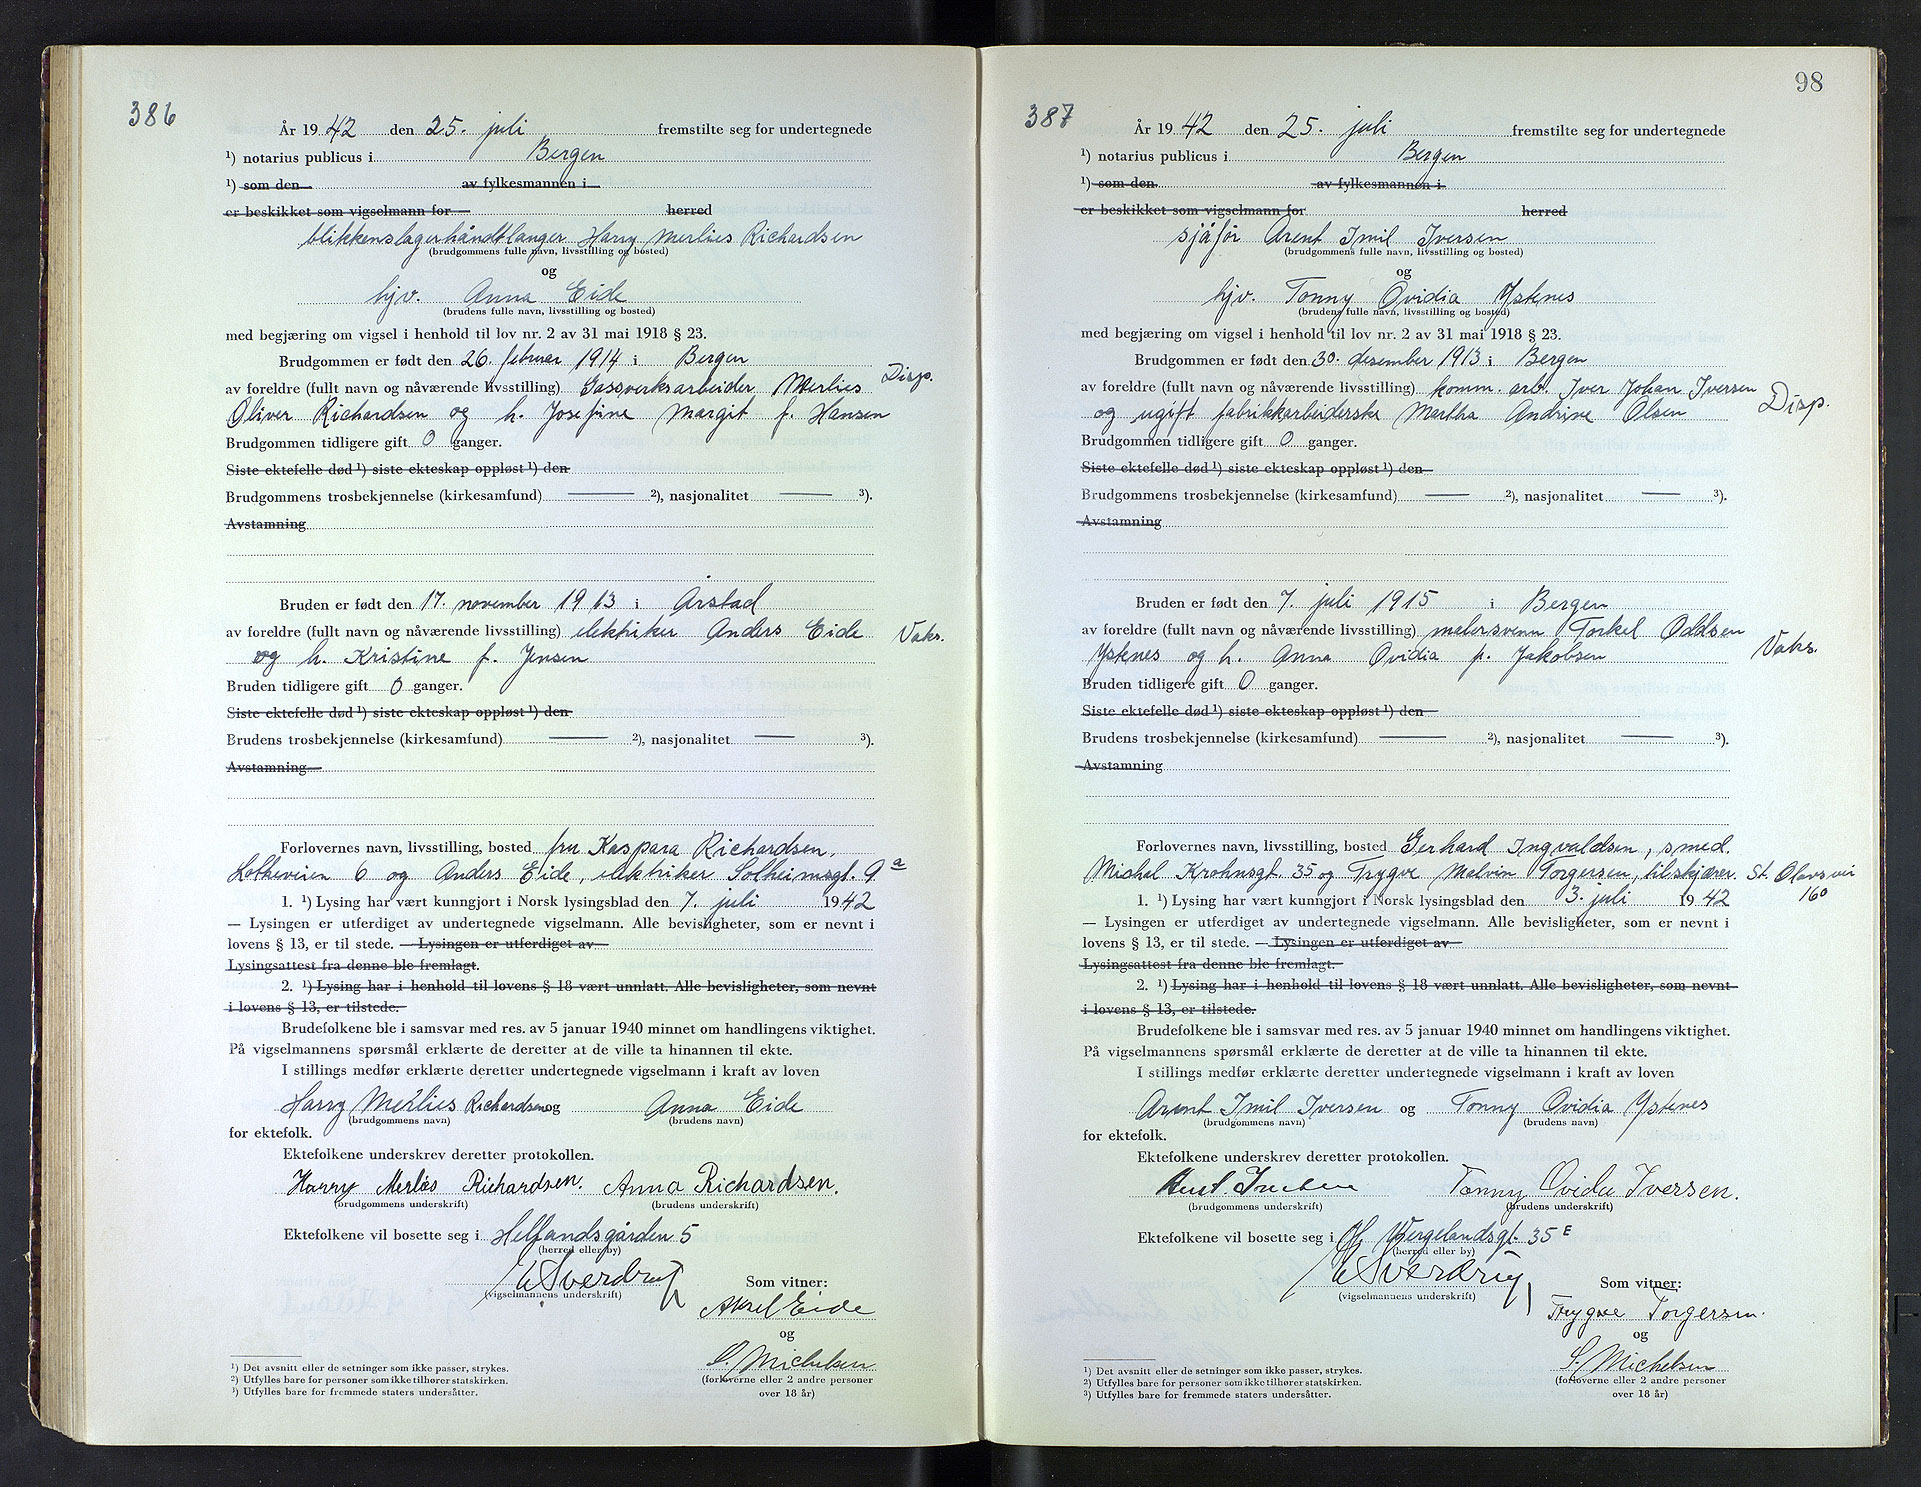 386
År 1942 den 25. juli fremstilte seg for undertegnede
¹) notarius publicus i Bergen
¹) som den av fylkesmannen i
er beskikket som vigselmann for herred
blikkenslagerhåndtlanger Harry Merlies Richardsen
(brudgommens fulle navn, livsstilling og bosted)
og
hjv. Anna Eide
(brudens fulle navn, livsstilling og bosted)
med begjæring om vigsel i henhold til lov nr. 2 av 31 mai 1918 § 23.
Brudgommen er født den 26. februar 1914 i Bergen
av foreldre (fullt navn og nåværende livsstilling) Gassverksarbeider Merlies Disp.
Oliver Richardsen og h. Josefine Margit f. Hansen
Brudgommen tidligere gift 0 ganger.
Siste ektefelle død ¹) siste ekteskap oppløst ¹) den
Brudgommens trosbekjennelse (kirkesamfund) — ²), nasjonalitet — ³).
Avstamning
Bruden er født den 17. november 1913 i Årstad
av foreldre (fullt navn og nåværende livsstilling) elektriker Anders Eide Vaks.
og h. Kristine f. Jensen
Bruden tidligere gift 0 ganger.
Siste ektefelle død ¹) siste ekteskap oppløst ¹) den
Brudens trosbekjennelse (kirkesamfund) — ²), nasjonalitet — ³).
Avstamning
Forlovernes navn, livsstilling, bosted fru Kaspara Richardsen,
Lotheveien 6 og Anders Eide, elektriker Solheimsgt. 9 a
1. ¹) Lysing har vært kunngjort i Norsk lysingsblad den 7. juli 1942
— Lysingen er utferdiget av undertegnede vigselmann. Alle bevisligheter, som er nevnt i
lovens § 13, er til stede. — Lysingen er utferdiget av
Lysingsattest fra denne ble fremlagt.
2. ¹) Lysing har i henhold til lovens § 18 vært unnlatt. Alle bevisligheter, som nevnt
i lovens § 13, er tilstede.
Brudefolkene ble i samsvar med res. av 5 januar 1940 minnet om handlingens viktighet.
På vigselmannens spørsmål erklærte de deretter at de ville ta hinannen til ekte.
I stillings medfør erklærte deretter undertegnede vigselmann i kraft av loven
Harry Merlies Richardsen og Anna Eide
(brudgommens navn) (brudens navn)
for ektefolk.
Ektefolkene underskrev deretter protokollen.
Harry Merlies Richardsen. Anna Richardsen.
(brudgommens underskrift) (brudens underskrift)
Ektefolkene vil bosette seg i Helfandsgården 5
(herred eller by)
Sverdrup
(vigselmannens underskrift) Som vitner:
Aksel Eide
og
S. Michelsen
(forloverne eller 2 andre personer
over 18 år)
¹) Det avsnitt eller de setninger som ikke passer, strykes.
²) Utfylles bare for personer som ikke tilhører statskirken.
³) Utfylles bare for fremmede staters undersåtter.
98
387
År 1942 den 25. juli fremstilte seg for undertegnede
¹) notarius publicus i Bergen
¹) som den av fylkesmannen i
er beskikket som vigselmann for herred
sjåfør Arent Imil Iversen
(brudgommens fulle navn, livsstilling og bosted)
og
hjv. Tonny Ovidia Ystenes
(brudens fulle navn, livsstilling og bosted)
med begjæring om vigsel i henhold til lov nr. 2 av 31 mai 1918 § 23.
Brudgommen er født den 30. desember 1913 i Bergen
av foreldre (fullt navn og nåværende livsstilling) komm. arb. Iver Johan Iversen
og ugift fabrikkarbeiderske Martha Andrine Olsen Disp.
Brudgommen tidligere gift 0 ganger.
Siste ektefelle død ¹) siste ekteskap oppløst ¹) den
Brudgommens trosbekjennelse (kirkesamfund) — ²), nasjonalitet — ³).
Avstamning
Bruden er født den 7. juli 1915 i Bergen
av foreldre (fullt navn og nåværende livsstilling) malersvenn Torkel Oddsen
Ystenes og h. Anna Ovidia f. Jakobsen Vaks.
Bruden tidligere gift 0 ganger.
Siste ektefelle død ¹) siste ekteskap oppløst ¹) den
Brudens trosbekjennelse (kirkesamfund) — ²), nasjonalitet — ³).
Avstamning
Forlovernes navn, livsstilling, bosted Gerhard Ingvaldsen, smed.
Michel Krohnsgt. 35 og Trygve Malvin Torgersen, tilskjærer. St. Olavsvei
160
1. ¹) Lysing har vært kunngjort i Norsk lysingsblad den 3. juli 1942
— Lysingen er utferdiget av undertegnede vigselmann. Alle bevisligheter, som er nevnt i
lovens § 13, er til stede. — Lysingen er utferdiget av
Lysingsattest fra denne ble fremlagt.
2. ¹) Lysing har i henhold til lovens § 18 vært unnlatt. Alle bevisligheter, som nevnt
i lovens § 13, er tilstede.
Brudefolkene ble i samsvar med res. av 5 januar 1940 minnet om handlingens viktighet.
På vigselmannens spørsmål erklærte de deretter at de ville ta hinannen til ekte.
I stillings medfør erklærte deretter undertegnede vigselmann i kraft av loven
Arent Imil Iversen og Tonny Ovidia Ystenes
(brudgommens navn) (brudens navn)
for ektefolk.
Ektefolkene underskrev deretter protokollen.
Tonny Ovidia Iversen.
(brudgommens underskrift) (brudens underskrift)
Ektefolkene vil bosette seg i Wergelandsgt. 35 E
(herred eller by)
Sverdrup
(vigselmannens underskrift) Som vitner:
Trygve Torgersen.
og
S. Michelsen
(forloverne eller 2 andre personer
over 18 år)
¹) Det avsnitt eller de setninger som ikke passer, strykes.
²) Utfylles bare for personer som ikke tilhører statskirken.
³) Utfylles bare for fremmede staters undersåtter.